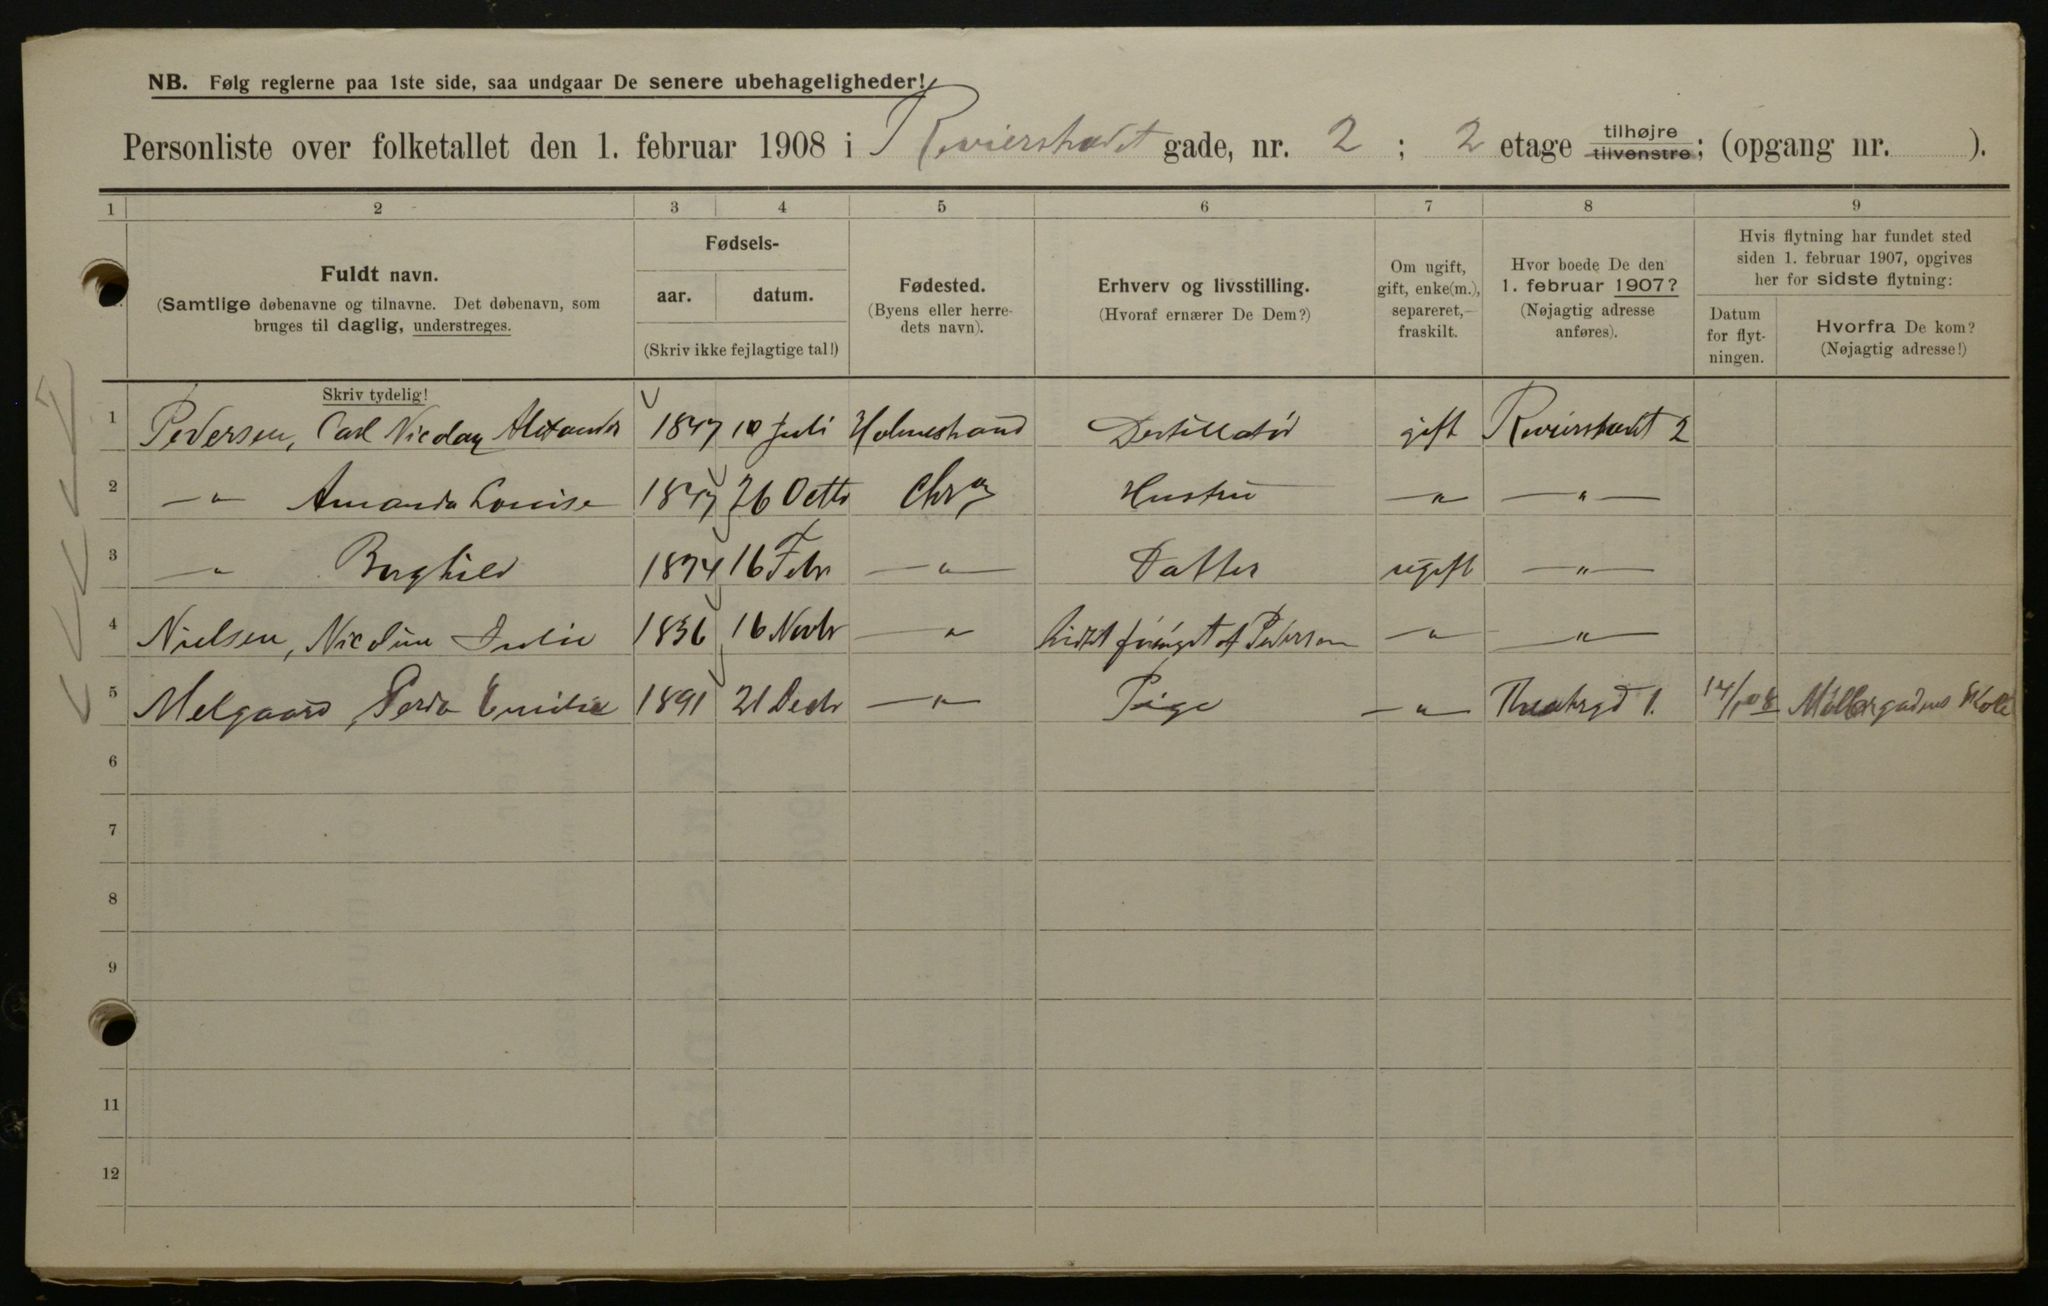 NB. Følg reglerne paa 1ste side, saa undgaar De senere ubehageligheder!
Personliste over folketallet den 1. februar 1908 i Revierstrædet gade, nr. 2 ; 2 etage tilhøjre tilvenstre; (opgang nr. ).
1 2 3 4 5 6 7 8 9
Fuldt navn.
(Samtlige døbenavne og tilnavne. Det døbenavn, som
bruges til daglig, understreges.
Skriv tydelig!
Fødsels-
aar. datum.
(Skriv ikke fejlagtige tal!)
Fødested.
(Byens eller herre-
dets navn).
Erhverv og livsstilling.
(Hvoraf ernærer De Dem?)
Om ugift,
gift, enke(m.),
separeret,
fraskilt.
Hvor boede De den
1. februar 1907?
(Nøjagtig adresse
anføres).
Hvis flytning har fundet sted
siden 1. februar 1907, opgives
her for sidste flytning:
Datum
for flyt-
ningen.
Hvorfra De kom?
(Nøjagtig adresse!)
1 Pedersen, Carl Nicolay Alexander 1847 10 Juli Holmestrand Destillatør gift Revierstrædet 2
2 –"– Amanda Louise 1847 26 Octb Chra Hustru –"– –"–
3 –"– Borghild 1874 16 Febr –"– Datter ugift –"–
4 Nielsen, Nicoline Julie 1836 16 Novbr –"– af Pedersen –"– –"–
5 Melgaard, Emilie 1891 21 Decbr –"– Pige –"– Theatergd 1. 14/1 08 Møllergadens Skole
6
7
8
9
11
12